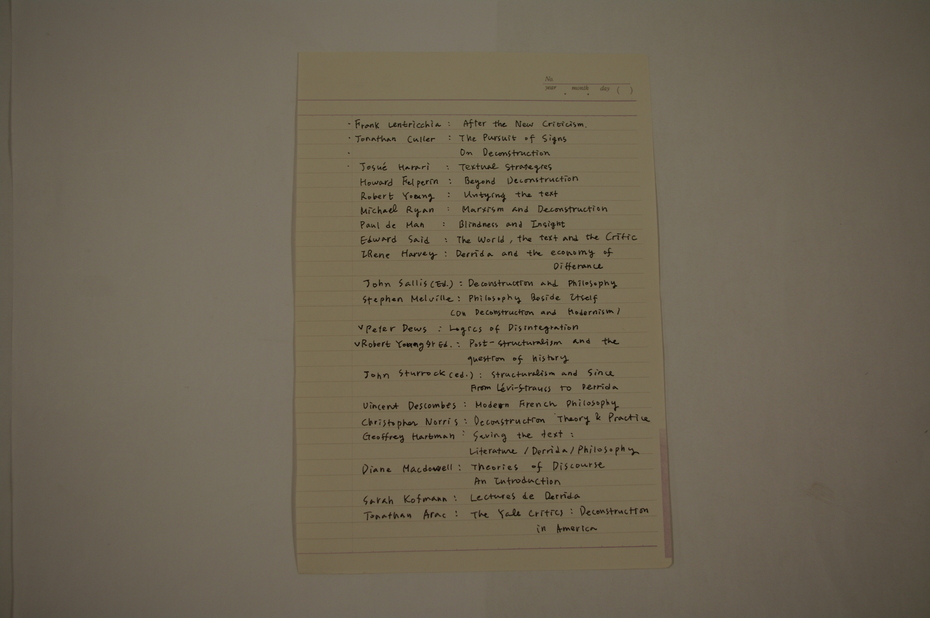 No.
year . month . day ( )
· Frank Lentricchia : After the New Criticism.
· Jonathan Culler : The Pursuit of Signs
· On Deconstruction
· Josué Harari : Textual Strategies
Howard Felperin : Beyond Deconstruction
Robert Young : Untying the text
Michael Ryan : Marxism and Deconstruction
Paul de Man : Blindness and Insight
Edward Said : The World, the text and the Critic
IRene Harvey : Derrida and the economy of
Differance
John Sallis (Ed.) : Deconstruction and Philosophy
Stephen Melville : Philosophy Beside Itself
(On Deconstruction and Modernism)
v Peter Dews : Logics of Disintegration
v Robert Young Ed. : Post-structuralism and the
question of history
John Sturrock (ed.) : Structuralism and Since
From Lévi-Strauss to Derrida
Vincent Descombes : Modern French Philosophy
Christopher Norris : Deconstruction Theory & Practice
Geoffrey Hartman : Saving the text :
Literature / Derrida / Philosophy
Diane Macdowell : Theories of Discourse
An Introduction
Sarah Kofmann : Lectures de Derrida
Jonathan Arac : The Yale Critics : Deconstruction
in America